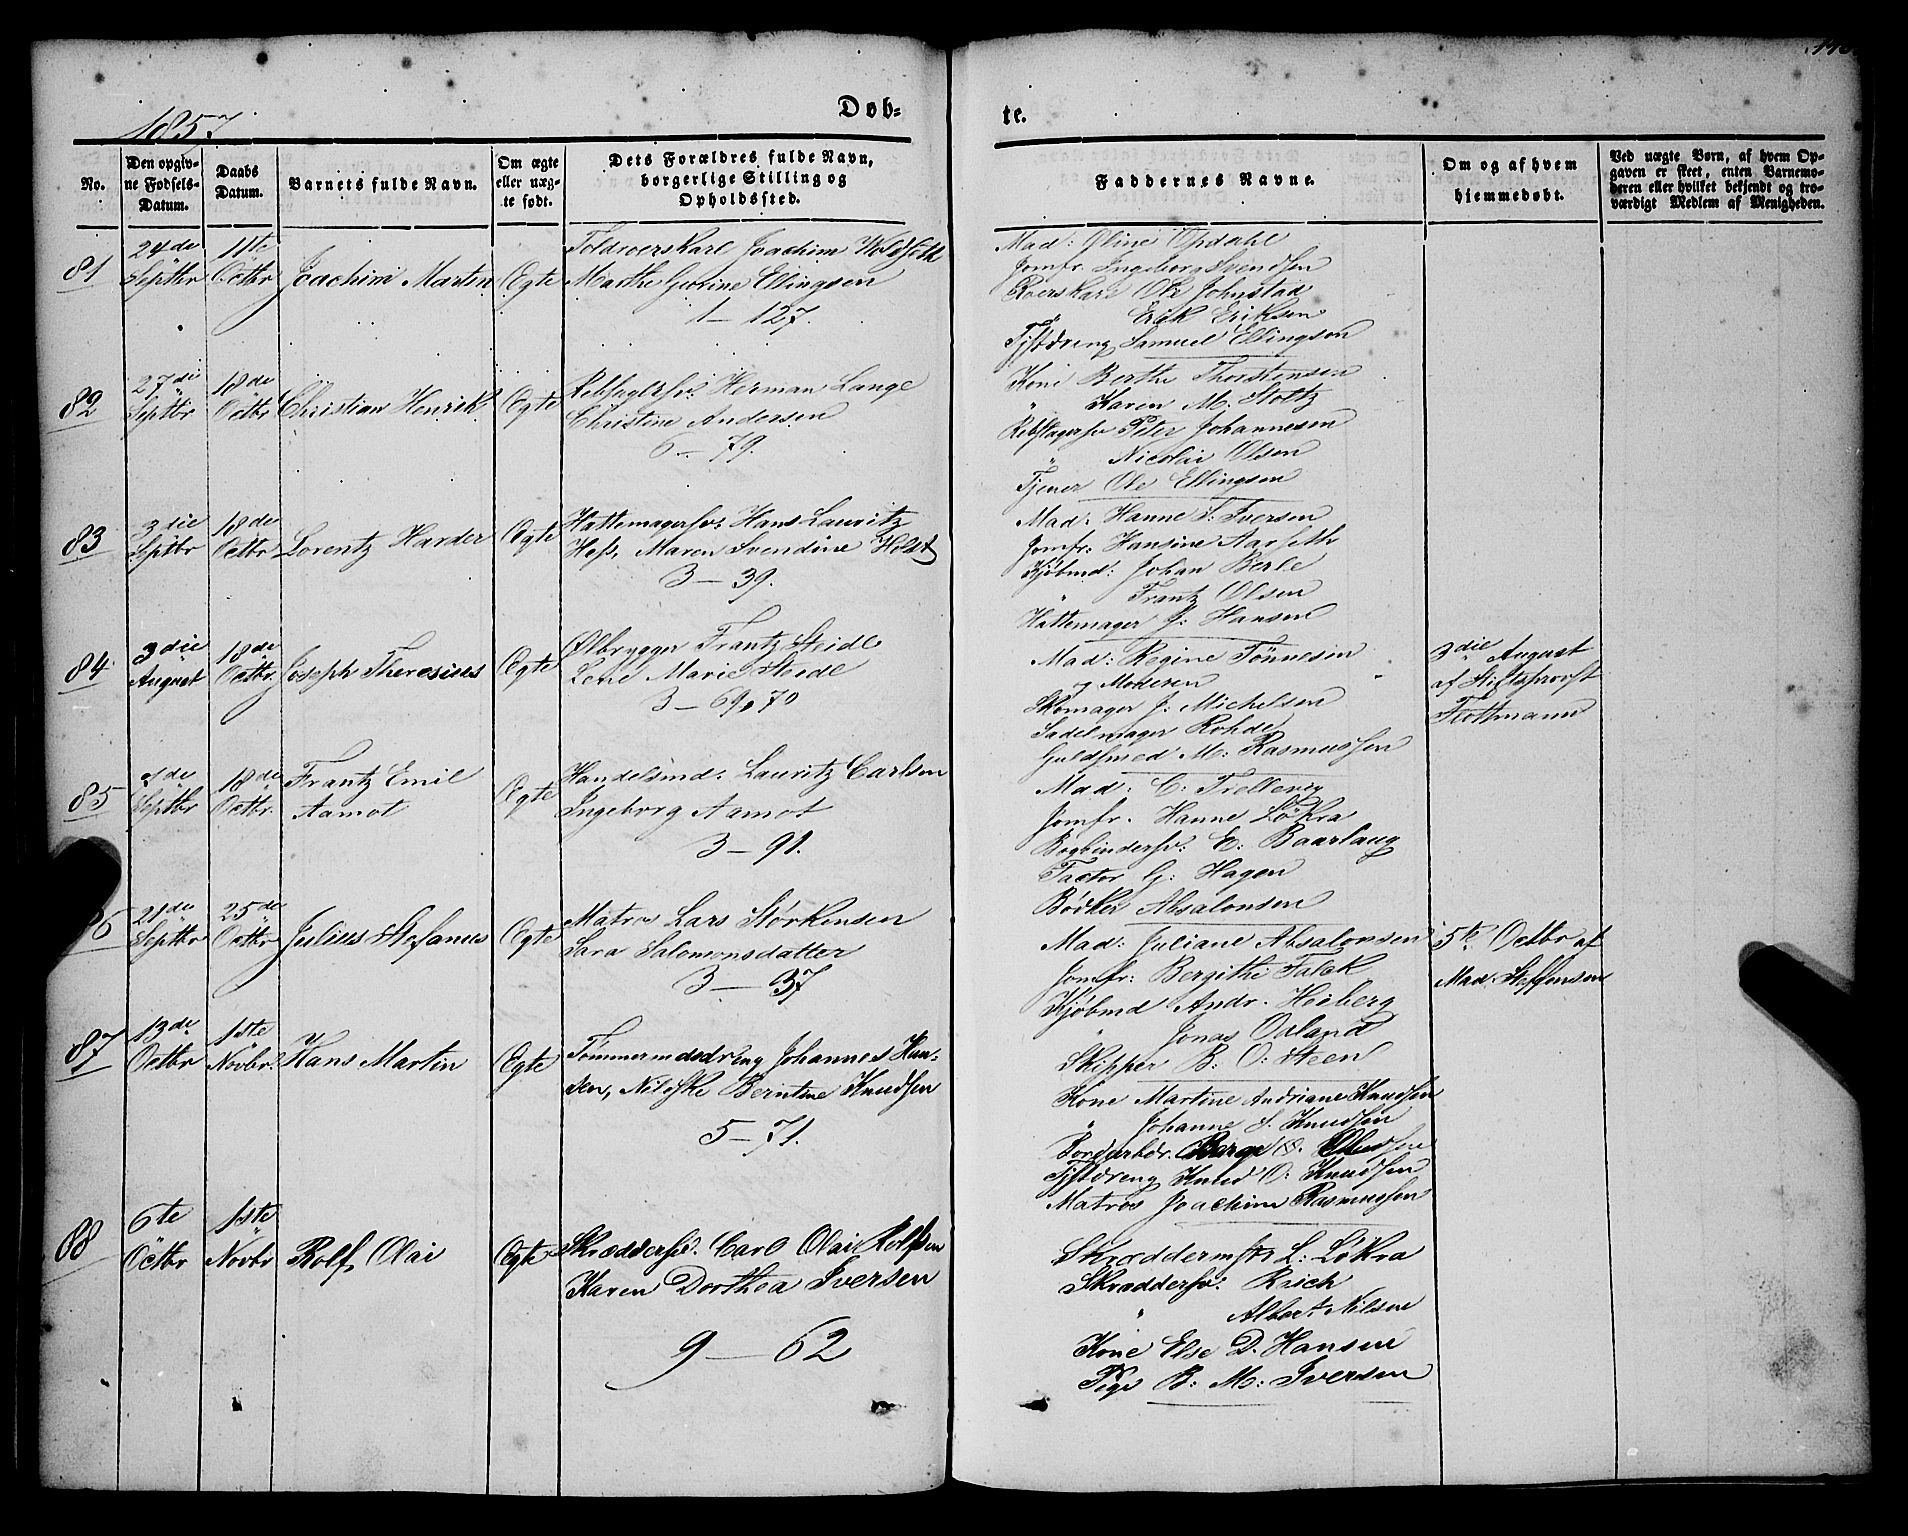 1857.
Døb=
te.
No.
Den opgiv-
ne Fødsels-
Datum.
Daabs
Datum.
Barnets fulde Navn.
Om ægte
eller uæg-
te født.
Dets Forældres fulde Navn,
borgerlige Stilling og
Opholdssted.
Faddernes Navne.
Om og af hvem
hjemmedøbt.
Ved uægte Børn, af hvem Op-
gaven er skeet, enten Barnemo-
deren eller hvilket bekjendt og tro-
værdigt Medlem af Menigheden.
81
24de
Septbr
11te
Octbr
Joachim Martin
Ægte
Toldroerskarl Joachim
Marthe Gurine Ellingsen
1 – 127.
Mad: Oline Opdahl
Jomfr. Ingeborg Svendsen
Roerskarl Ole Johnstad
Erik Eriksen
Tjstdreng Samuel Ellingsen
82
27de
Septbr
18de
Octbr
Christian Henrik
Ægte
Rebslagersv: Herman Lange
Christine Andersen
6 – 79.
Kone Berthe Thorstensen
" Karen M: Stoltz
Rebslagersv Peter Johannesen
" Nicolai Olsen
Tjener Ole Ellingsen
83
3die
Septbr
18de
Octbr
Lorentz Harder
Ægte
Hattemagersv: Hans Lauritz
Hess, Maren Svendine Holst
3 – 39.
Mad: Hanne S: Iversen
Jomfr: Hansine Aarseth
Kjøbmd: Johan Berle
" Frantz Olsen
Hattemager J: Hansen
84
3die
August
18de
Octbr.
Joseph Theresius
Ægte
Ølbrygger Frantz Steidl
Lene Marie Steidl
3 – 69, 70
Mad: Regine Tönnesen
og Moderen
Skomager J: Michelsen
Sadelmager Rohde
Guldsmed M: Rasmussen
3die August
af Stiftsprovst
Flottmann
85
1de
Septbr
18de
Octbr.
Frantz Emil
Aamot
Ægte
Handelsmd: Lauritz Carlsen
Ingeborg Aamot
3 – 91.
Mad: C: Trellevig
Jomfr. Hanne Lökra
Bogbindersv: E: Baarlaug
Factor G: Hagen
Bödker Absalonsen
6
21de
Septbr
25de
Octbr
Julius Stefanus
Ægte
Matros Lars Störkensen
Sara Salomonsdatter
3 – 37
Mad: Juliane Absalonsen
Jomfr: Bergithe Falck
Kjøbmd Andr. Heiberg
" Jonas Oxland
Skipper B. O: Steen
5te Octbr af
Mad: Steffensen
87
13de
Octbr
1ste
Novbr.
Hans Martin
Ægte
Tømmermdsdreng Johannes Han-
sen, Nilske Berntine Knudsen
5 – 71.
Kone Martine Andriane Knudsen
" Johanne S. Knudsen
Tjstdreng Knud O. Knudsen
Matros Joachim Rasmussen
88
6te
Octbr
1ste
Novbr
Rolf Olai
Ægte
Skræddersv. Carl Olai Rolfsen
Karen Dorthea Iversen
9 – 62
Skræddermstr L: Lökra
Skræddersv: Reich
" Albert Nilsen
Kone Else D. Hansen
Pige B: M: Iversen